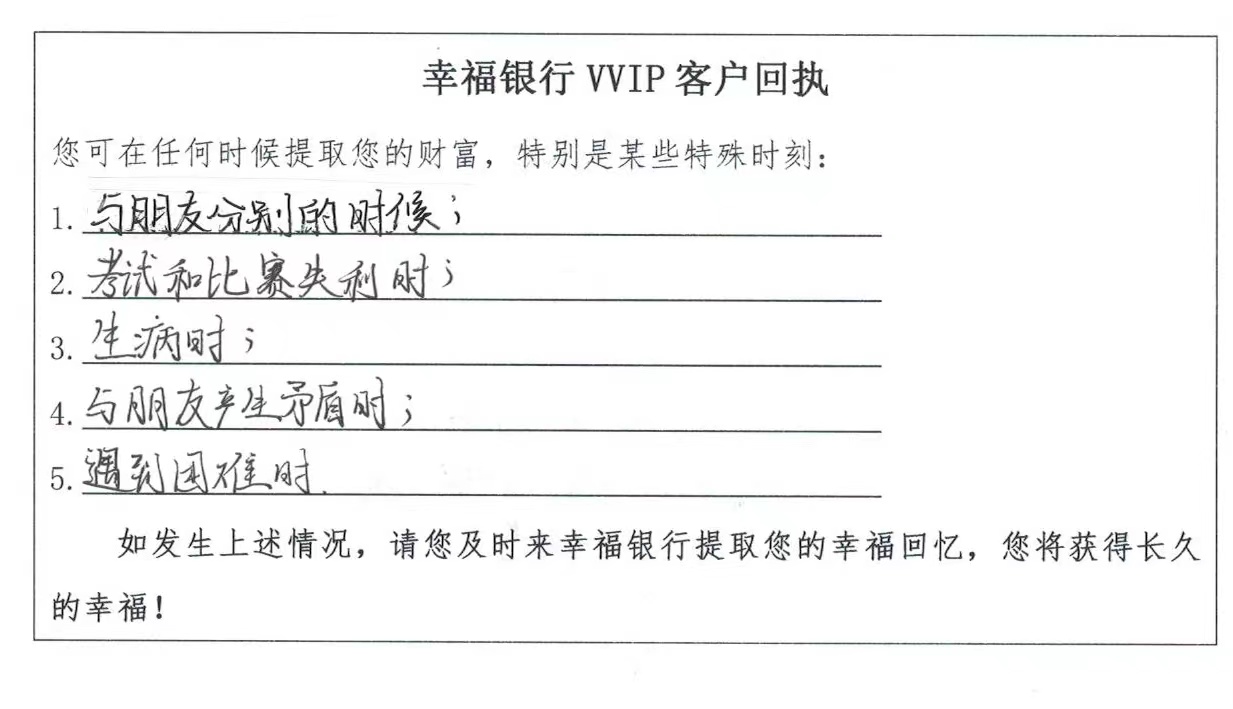 幸福银行 VVIP 客户回执
您可在任何时候提取您的财富，特别是某些特殊时刻：
1. 与朋友分别的时候；
2. 考试和比赛失利时；
3. 生病时；
4. 与朋友产生矛盾时；
5. 遇到困难时.
如发生上述情况，请您及时来幸福银行提取您的幸福回忆，您将获得长久
的幸福！